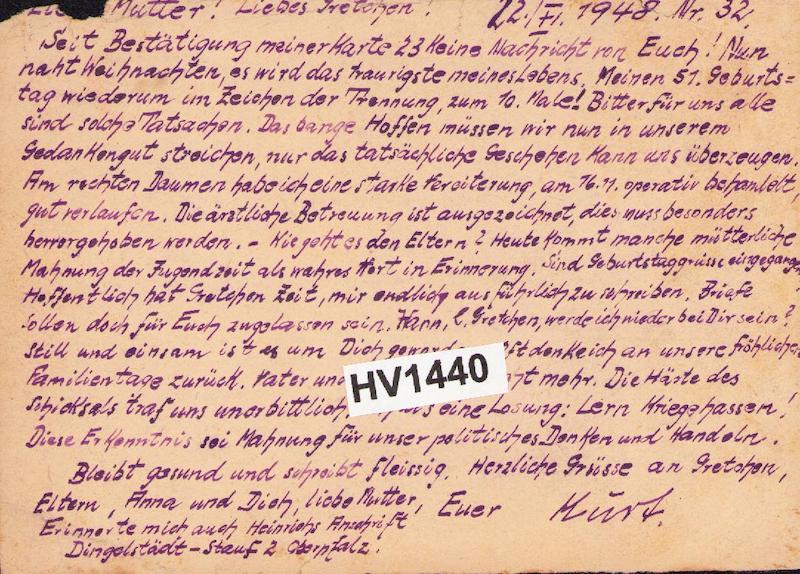 Liebe Mutter! Liebes Gretchen! 22./XI. 1948. Nr. 32.
Seit Bestätigung meiner Karte 23 keine Nachricht von Euch! Nun
naht Weihnachten, es wird das traurigste meines Lebens. Meinen 51. Geburts=
tag wiederum im Zeichen der Trennung, zum 10. Male! Bitter für uns alle
sind solche Tatsachen. Das bange Hoffen müssen wir nun in unserem
Gedankengut streichen, nur das tatsächliche Geschehen kann uns überzeugen.
Am rechten Daumen habe ich eine starke Vereiterung, am 16.11. operativ behandelt,
gut verlaufen. Die ärztliche Betreuung ist ausgezeichnet, dies muss besonders
hervorgehoben werden. – Wie geht es den Eltern? Heute kommt manche mütterliche
Mahnung der Jugendzeit als wahres Wort in Erinnerung. Sind Geburtstaggrüsse eingegangen?
Hoffentlich hat Gretchen Zeit, mir endlich ausführlich zu schreiben. Briefe
sollen doch für Euch zugelassen sein. Wann, l. Gretchen, werde ich wieder bei Dir sein?
Still und einsam ist es um Dich denke ich an unsere fröhlichen
Familientage zurück. Vater mehr. Die Härte des
Schicksals traf uns unerbittlich. eine Losung: Lern Krieg hassen!
Diese Erkenntnis sei Mahnung für unser politisches Denken und Handeln.
Bleibt gesund und schreibt fleissig. Herzliche Grüsse an Gretchen,
Eltern, Anna und Dich, liebe Mutter, Euer Kurt.
Erinnerte mich auch Heinrichs Anschrift
Dingelstädt – Stauf 2 Oberpfalz.
HV1440